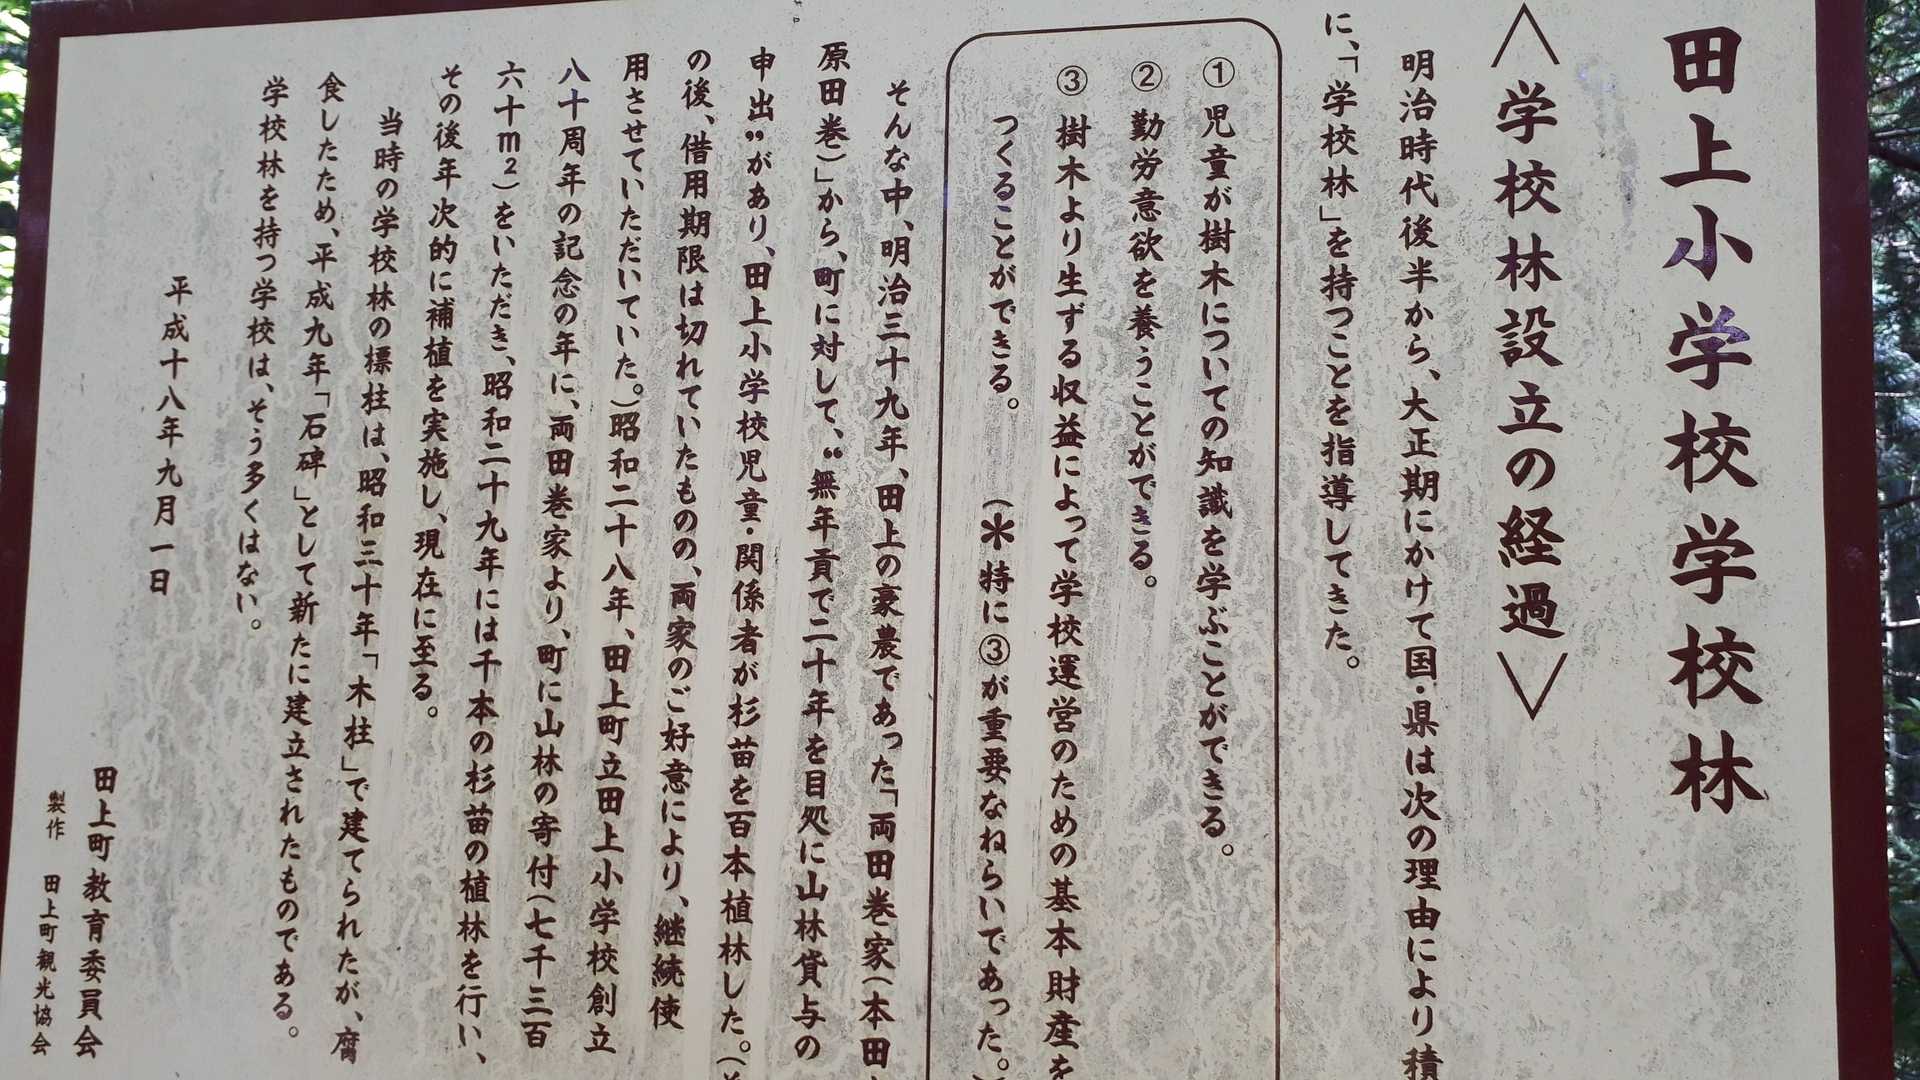 田上小学校学校林
＜学校林設立の経過＞
明治時代後半から、大正期にかけて国・県は次の理由により積
に、「学校林」を持つことを指導してきた。
① 児童が樹木についての知識を学ぶことができる。
② 勤労意欲を養うことができる。
③ 樹木より生ずる収益によって学校運営のための基本財産を
つくることができる。　（＊特に③が重要なねらいであった。）
そんな中、明治三十九年、田上の豪農であった「両田巻家（本田
原田巻）」から、町に対して、“無年貢で二十年を目処に山林貸与の
申出”があり、田上小学校児童・関係者が杉苗を一百本植林した。（
の後、借用期限は切れていたものの、両家のご好意により、継続使
用させていただいていた。）昭和二十八年、田上町立田上小学校創立
八十周年の記念の年に、両田巻家より、町に山林の寄付（七千三百
六十m²）をいただき、昭和二十九年には千本の杉苗の植林を行い、
その後年次的に補植を実施し、現在に至る。
当時の学校林の標柱は、昭和三十年「木柱」で建てられたが、腐
食したため、平成九年「石碑」として新たに建立されたものである。
学校林を持つ学校は、そう多くはない。
平成十八年九月一日
田上町教育委員会
製作　田上町観光協会